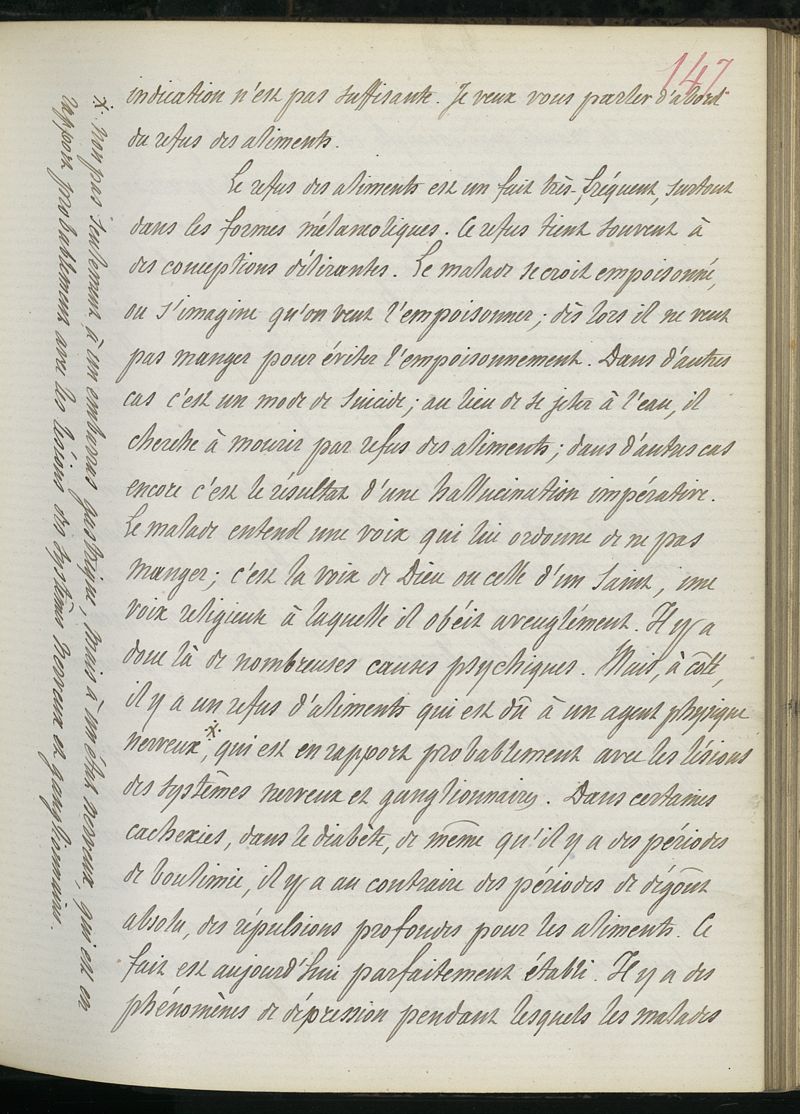 147
indication n'est pas suffisante. Je veux vous parler d'abord
du refus des aliments.
Le refus des aliments est un fait très-fréquent, surtout
dans les formes mélancoliques. Ce refus tient souvent à
des conceptions délirantes. Le malade se croit empoisonné,
ou s'imagine qu'on veut l'empoisonner; dès lors il ne veut
pas manger pour éviter l'empoisonnement. Dans d'autres
cas c'est un mode de suicide; au lieu de se jeter à l'eau, il
cherche à mourir par refus des aliments; dans d'autres cas
encore c'est le résultat d'une hallucination impérative.
Le malade entend une voix qui lui ordonne de ne pas
manger; c'est la voix de Dieu ou celle d'un Saint, une
voix religieuse à laquelle il obéit aveuglément. Il y a
donc là de nombreuses causes psychiques. Mais, à côté,
il y a un refus d'aliments qui est dû à un agent physique
nerveux, x qui est en rapport probablement avec les lésions
des systèmes nerveux et ganglionnaires. Dans certaines
cachexies, dans le diabète, de même qu'il y a des périodes
de boulimie, il y a au contraire des périodes de dégoût
absolu, des répulsions profondes pour les aliments. Ce
fait est aujourd'hui parfaitement établi. Il y a des
phénomènes de dépression pendant lesquels les malades
x non pas seulement à un embarras gastrique mais à un état nerveux, qui est en
rapport probablement avec les lésions des systèmes nerveux et ganglionnaires.